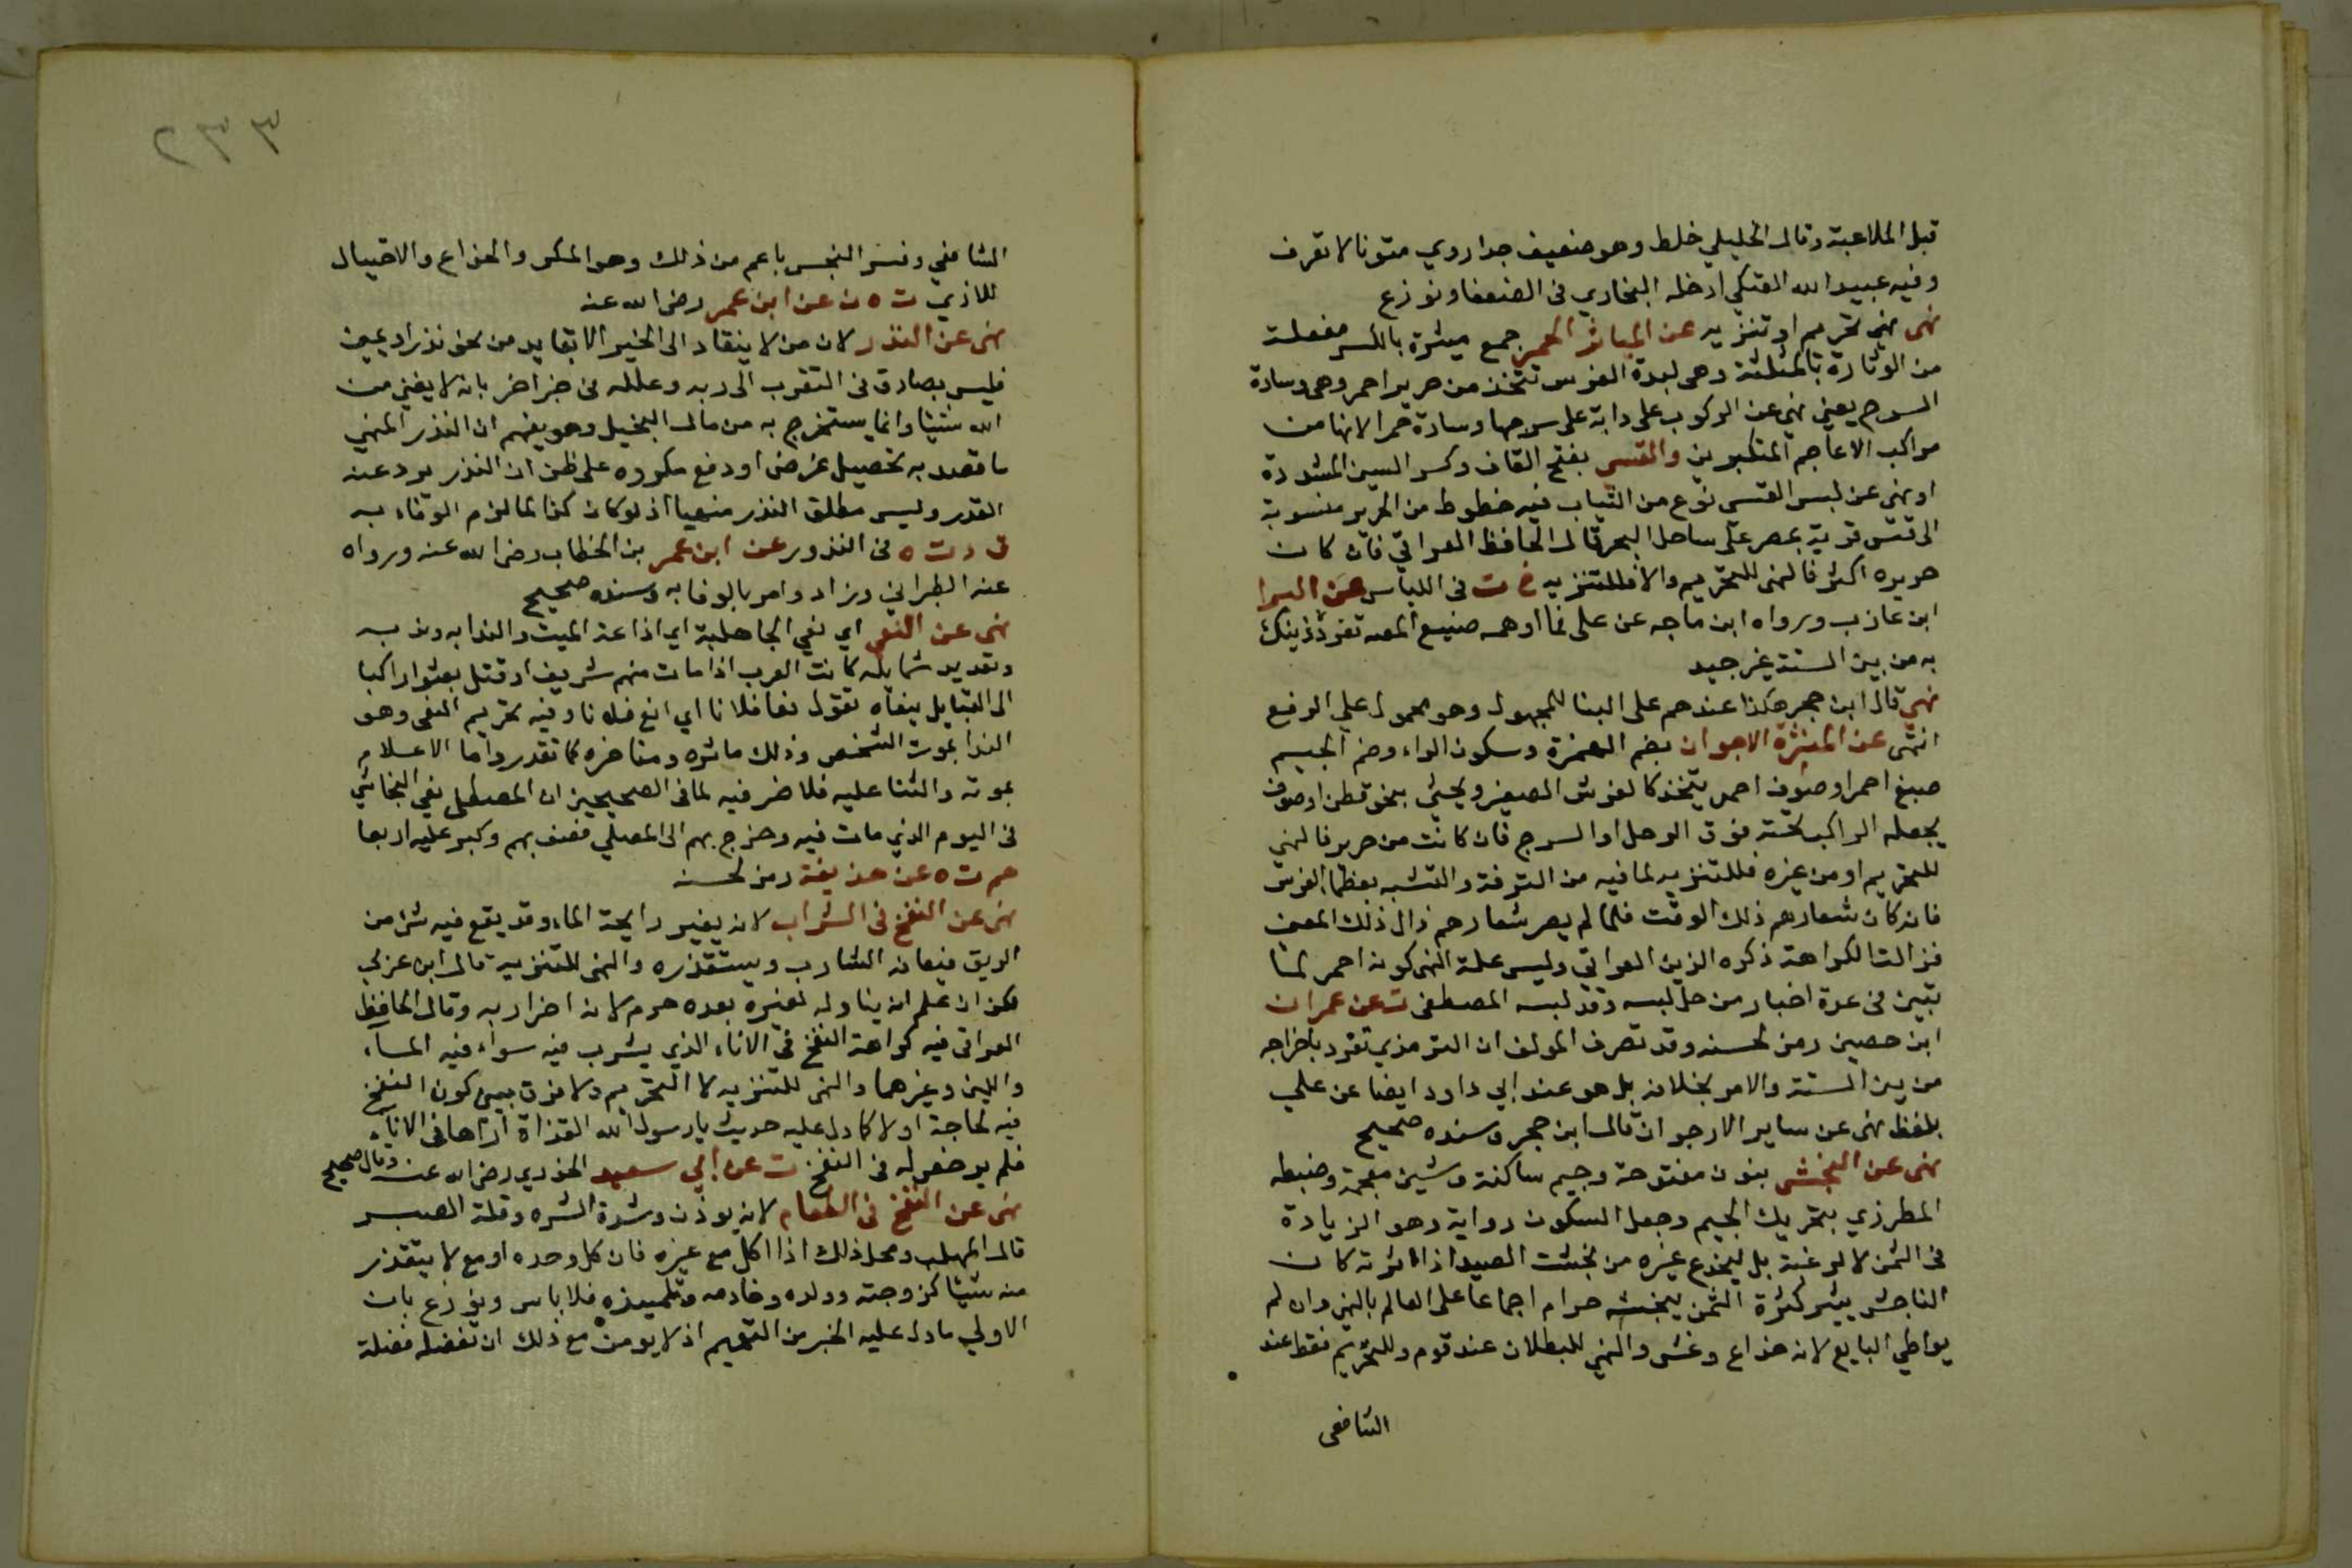 قبل الملاعبة وقال الخليلي خلط وهو ضعيف جدا روي متونا لا تعرف
وفيه عبيد الله العتكي ادخله البخاري في الضعفا ونوزع
نهى نهي تحريم او تنزيه عن المياثر الحمر جمع ميثرة بالكسر مفعلة
من الوثارة بالمثلثة وهي لبدة الفرس تتخذ من حرير احمر وهي وسادة
السرج يعني نهي عن الركوب على دابة على سرجها وسادة حمر الانها من
مراكب الاعاجم المتكبرين والقسي بفتح القاف وكسر السين المشددة
او نهى عن لبس القسي نوع من الثياب فيه خطوط من الحرير منسوبة
الى قس قرية بمصر على ساحل البحر قال الحافظ العراقي فان كان
حريره اكثر فالنهى للتحريم والا فللتنزيه خ ت في اللباس عن البرا
ابن عازب ورواه ابن ماجه عن على فما اوهمه صنيع المصه تفرد ذينك
به من بين الستة غير جيد
نهي قال ابن حجر هكذا عندهم على البنا للمجهول وهو محمول على الرفع
انتهى عن الميثرة الاجوان بضم الهمزة وسكون الراء وضم الجيم
صبغ احمر او صوف احمر يتخذ كالفرش الصغير ويحشى بنحو قطن او صوف
يجعله الراكب تحته فوق الرحل او السرج فان كانت من حرير فالنهي
للتحريم او من غيره فللتنزيه لما فيه من الترفه والتشبه بعظما الفرس
فانه كان شعارهم ذلك الوقت فلما لم يصر شعارهم زال ذلك المعنى
فزالت الكراهة ذكره الزين العراقي وليس علة النهى كونه احمر لما
تبين في عدة اخبار من حل لبسه وقد لبسه المصطفى ت عن عمران
ابن حصين رمز لحسنه وقد تصرف المولف ان الترمذي تفرد باخراجه
من بين الستة والامر بخلافه بل هو عند ابي داود ايضا عن علي
بلفظ نهى عن ساير الارجوان قال ابن حجر وسنده صحيح
نهى عن النجش بنون مفتوحة وجيم ساكنة وشين معجمة وضبطه
المطرزي بتحريك الجيم وجعل السكون رواية وهو الزيادة
في الثمن لا لرغبة بل ليخدع غيره من نجشت الصيد اذا اثرته كان
الناجش يثير كثرة الثمن بنجشه حرام اجماعا على العالم بالنهي وان لم
يواطي البايع لانه خداع وغش والنهي للبطلان عند قوم وللتحريم فقط عند
الشافعى
٢٣٣
الشافعي وفسر النجس باعم من ذلك وهو المكر والخداع والاحتيال
للاذي ت ه ن عن ابن عمر رضى الله عنه
نهى عن النذر لان من لا ينقاد الى الخير الا بقايد من نحو نذر او يمين
فليس بصادق في التقرب الى ربه وعلله في خبر اخر بانه لا يغني من
الله شيئا وانما يستخرج به من مال البخيل وهو يفهم ان النذر المنهي
ما قصد به تحصيل غرض او دفع مكروه على ظن ان النذر يرد عنه
القدر وليس مطلق النذر منهيا اذ لو كان كذا لما لزم الوفاء به
ق د ت ه في النذور عن ابن عمر بن الخطاب رضى الله عنه ورواه
عنه الطبراني وزاد وامر بالوفا به وسنده صحيح
نهى عن النعى اي نعي الجاهلية اي اذاعة الميت والندا به وندبه
وتعديد شمايله كانت العرب اذا مات منهم شريف او قتل بعثوا راكبا
الى القبايل ينعاه تقول نعا فلانا اي انع فلانا وفيه تحريم النعى وهو
الندا بموت الشخص وذلك ماثره ومفاخره كما تقدر واما الاعلام
بموته والثنا عليه فلا ضر فيه لما في الصحيحين ان المصطفى نعي النجاشي
في اليوم الذي مات فيه وخرج بهم الى المصلي فصف بهم وكبر عليه اربعا
حم ت ه عن حذيفة رمز لحسنه
نهى عن النفخ في الشراب لانه يغير رايحة الماء وقد يقع فيه شئ من
الريق فيعافه الشارب ويستقذره والنهى للتنزيه قال ابن عربي
لكن ان علم انه يناوله لغيره بعده حرم لانه اضرار به وقال الحافظ
العراقى فيه كراهة النفخ في الاناء الذي يشرب فيه سواء فيه الماء
واللبن وغيرهما والنهى للتنزيه لا التحريم ولا فرق بين كون النفخ
فيه لحاجة او لا كما دل عليه حديث يا رسول الله القذاة اراها في الاناء
فلم يرخص له في النفخ ت عن ابي سعيد الخدري رضى الله عنه وقال صحيح
نهى عن النفخ في الطعام لانه يوذن وشدة الشره وقلة الصبر
قال المهلب ومحل ذلك اذا اكل مع غيره فان كل وحده او مع لا يتقذر
منه شيئا كزوجته وولده وخادمه وتلميذه فلا باس ونوزع بان
الاولي ما دل عليه الخبر من التعميم اذ لا يومن مع ذلك ان تفضله فضلة